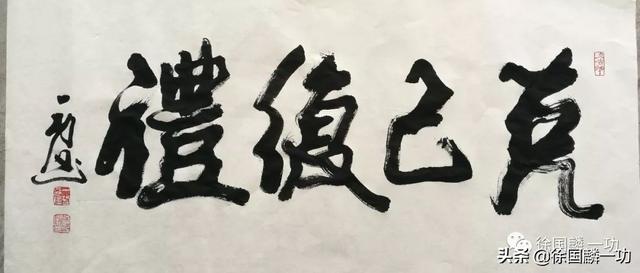 克己復禮
一功書
徐国麟一功
头条 @徐国麟一功